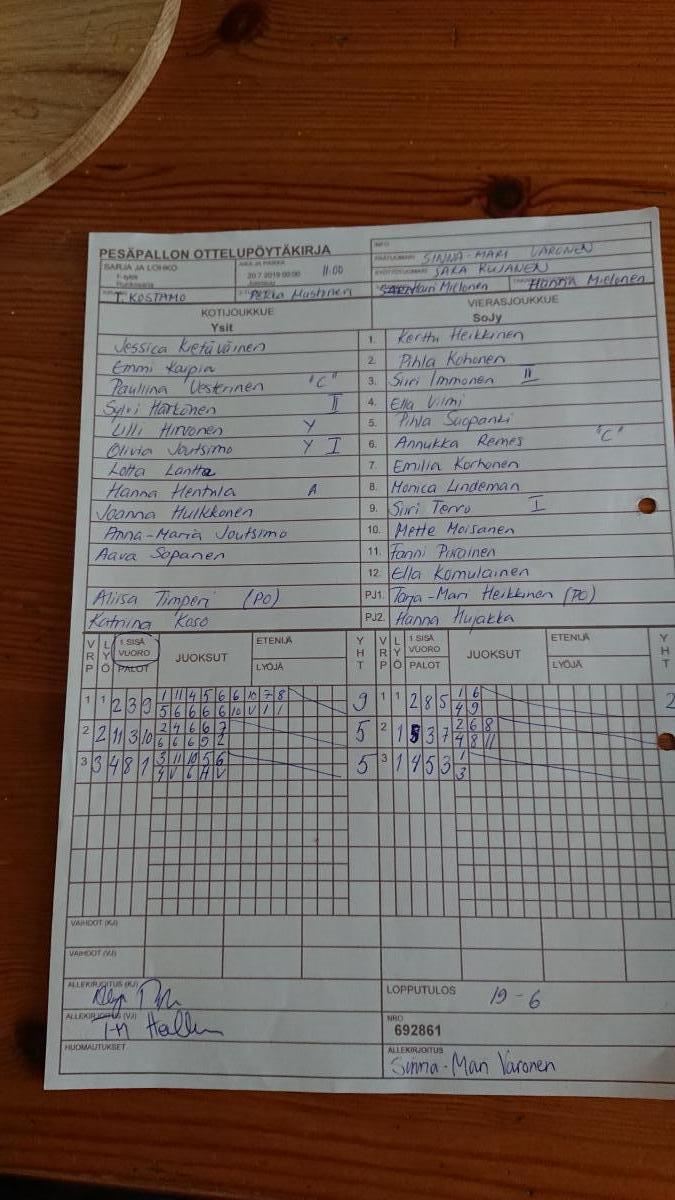 PESÄPALLON OTTELUPÖYTÄKIRJA
INFO
SARJA JA LOHKO
AIKA JA PAIKKA
20.7.2019 00:00 11:00
SINNA-MARI VARONEN
SARA
T. KOSTAMO Pekka Mustonen Mielonen Hanna Mielonen
KOTIJOUKKUE VIERASJOUKKUE
Ysit SoJy
Jessica Kietäväinen 1. Kerttu Heikkinen
Emmi Karpin 2. Pihla Kohonen
Pauliina Vesterinen "C" 3. Siiri Immonen II
Sylvi Härkönen II 4. Ella Vilmi
Lilli Hirvonen Y 5. Pihla Suopanki
Olivia Joutsimo Y I 6. Annukka Remes "C"
Lotta Lantta 7. Emilia Korhonen
Hanna Hentula A 8. Monica Lindeman
Joanna Hulkkonen 9. Siiri Tervo I
Anna-Maria Joutsimo 10. Mette Moisanen
Aava Sopanen 11. Fanni Piirainen
12. Ella Komulainen
Aliisa Timperi (PO) PJ1. Tarja-Mari Heikkinen (PO)
Katriina Kaso PJ2. Hanna Hujakka
VRP LYÖ 1 SISÄ VUORO PALOT JUOKSUT ETENIJÄ LYÖJÄ YHT VRP LYÖ 1 SISÄ VUORO PALOT JUOKSUT ETENIJÄ LYÖJÄ YHT
1 1 2 3 9 1 11 4 5 6 6 10 7 8 9 1 1 2 8 5 1 6 2
5 6 6 6 6 10 V 1 1 4 9
2 2 11 3 10 2 4 6 6 7 5 2 1 5 3 7 2 6 8
6 6 6 9 2 4 8 11
3 3 4 8 1 3 11 10 5 6 5 3 1 4 5 3 1
4 V 6 A V 3
VAIHDOT (KJ)
VAIHDOT (VJ)
ALLEKIRJOITUS (KJ) LOPPUTULOS 19-6
ALLEKIRJOITUS (VJ) NRO
692861
HUOMAUTUKSET ALLEKIRJOITUS
Sinna-Mari Varonen